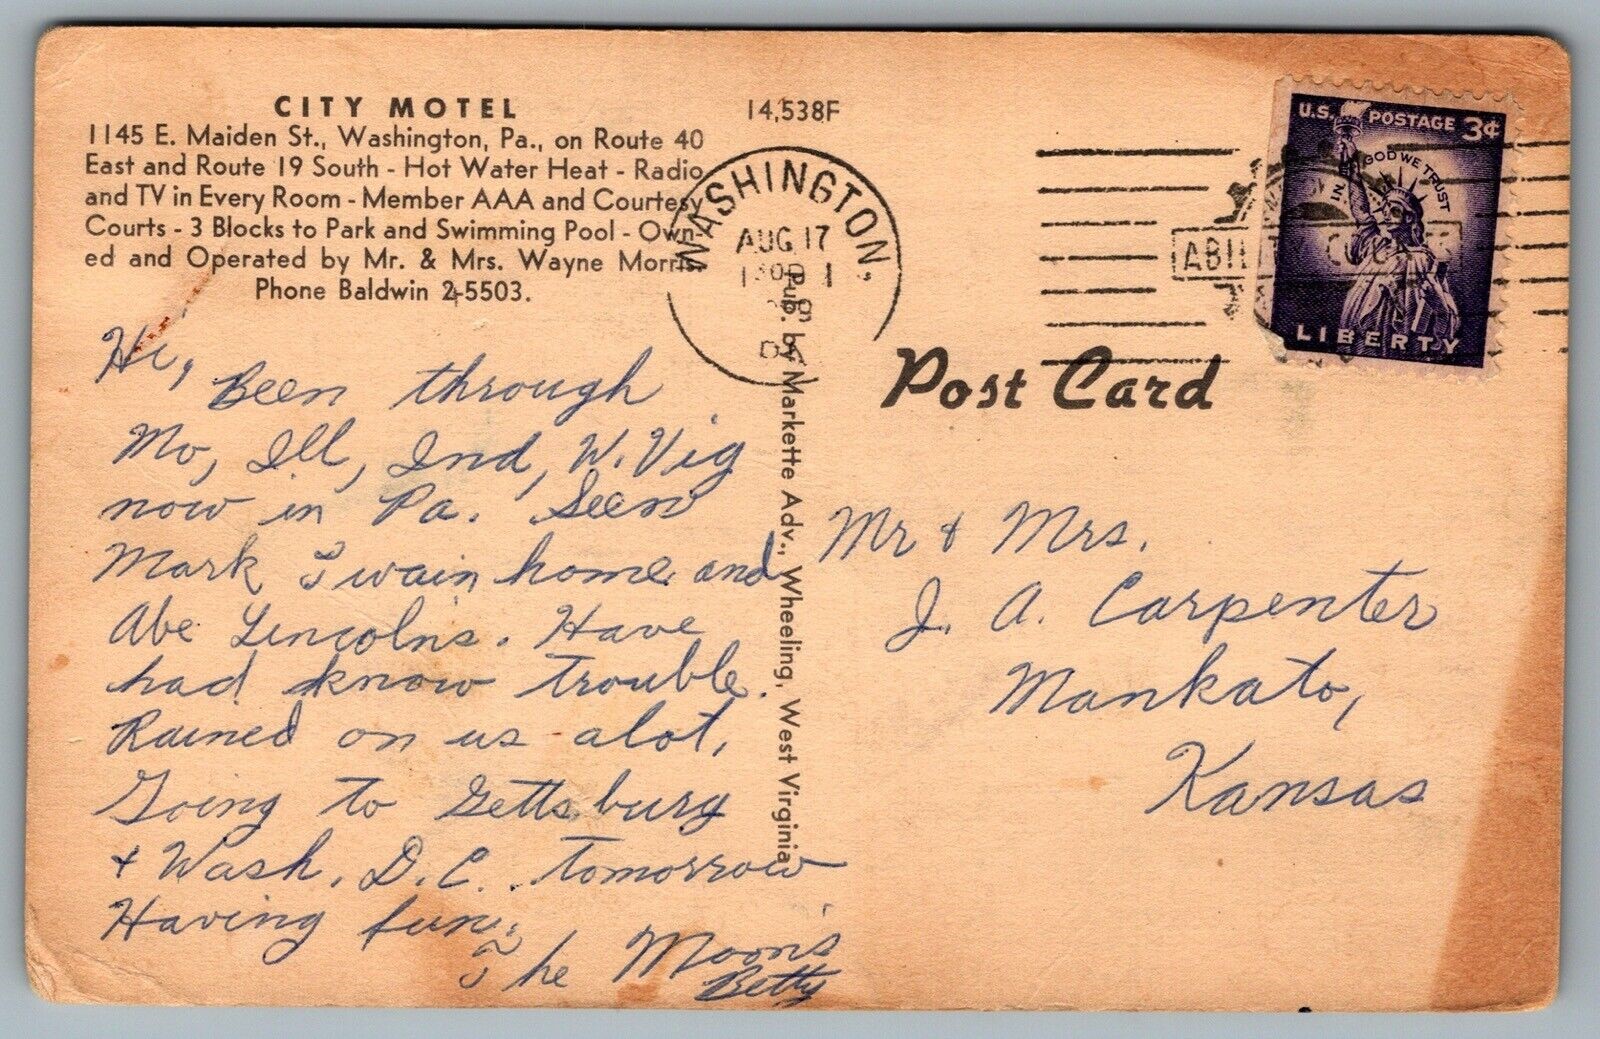 CITY MOTEL
1145 E. Maiden St., Washington, Pa., on Route 40
East and Route 19 South - Hot Water Heat - Radio
and TV in Every Room - Member AAA and Courtesy
Courts - 3 Blocks to Park and Swimming Pool - Own-
ed and Operated by Mr. & Mrs. Wayne Morris.
Phone Baldwin 2-5503.
14,538F
WASHINGTON,
AUG 17
U.S. POSTAGE 3¢
IN GOD WE TRUST
LIBERTY
Post Card
Pub. by Markette Adv., Wheeling, West Virginia
Hi,
Been through
Mo, Ill, Ind, W. Vig
now in Pa. Seen
Mark Twain home and
Abe Lincolns. Have
had know trouble.
Rained on us alot,
Going to Gettsburg
+ Wash. D.C. tomorrow
Having fun.
The Moon's
Betty
Mr + Mrs.
J. A. Carpenter
Mankato,
Kansas